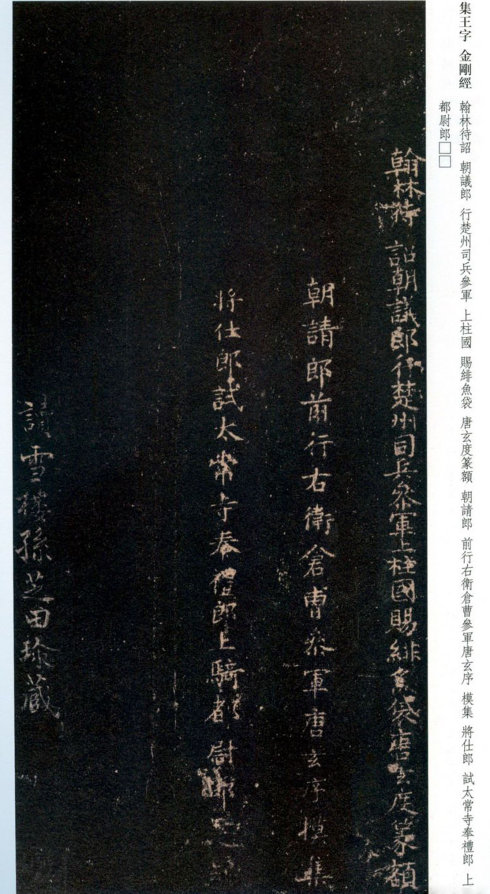 集王字 金剛經 翰林待詔 朝議郎 行楚州司兵參軍 上柱國 賜緋魚袋 唐玄度篆額 朝請郎 前行右衛倉曹參軍唐玄序 模集 將仕郎 試太常寺奉禮郎 上
都尉郎□□
翰林待詔朝議郎行楚州司兵參軍上柱國賜緋魚袋唐玄度篆額
朝請郎前行右衛倉曹參軍唐玄序模集
將仕郎試太常寺奉禮郎上騎都尉
讀雪樓孫芝田珍藏